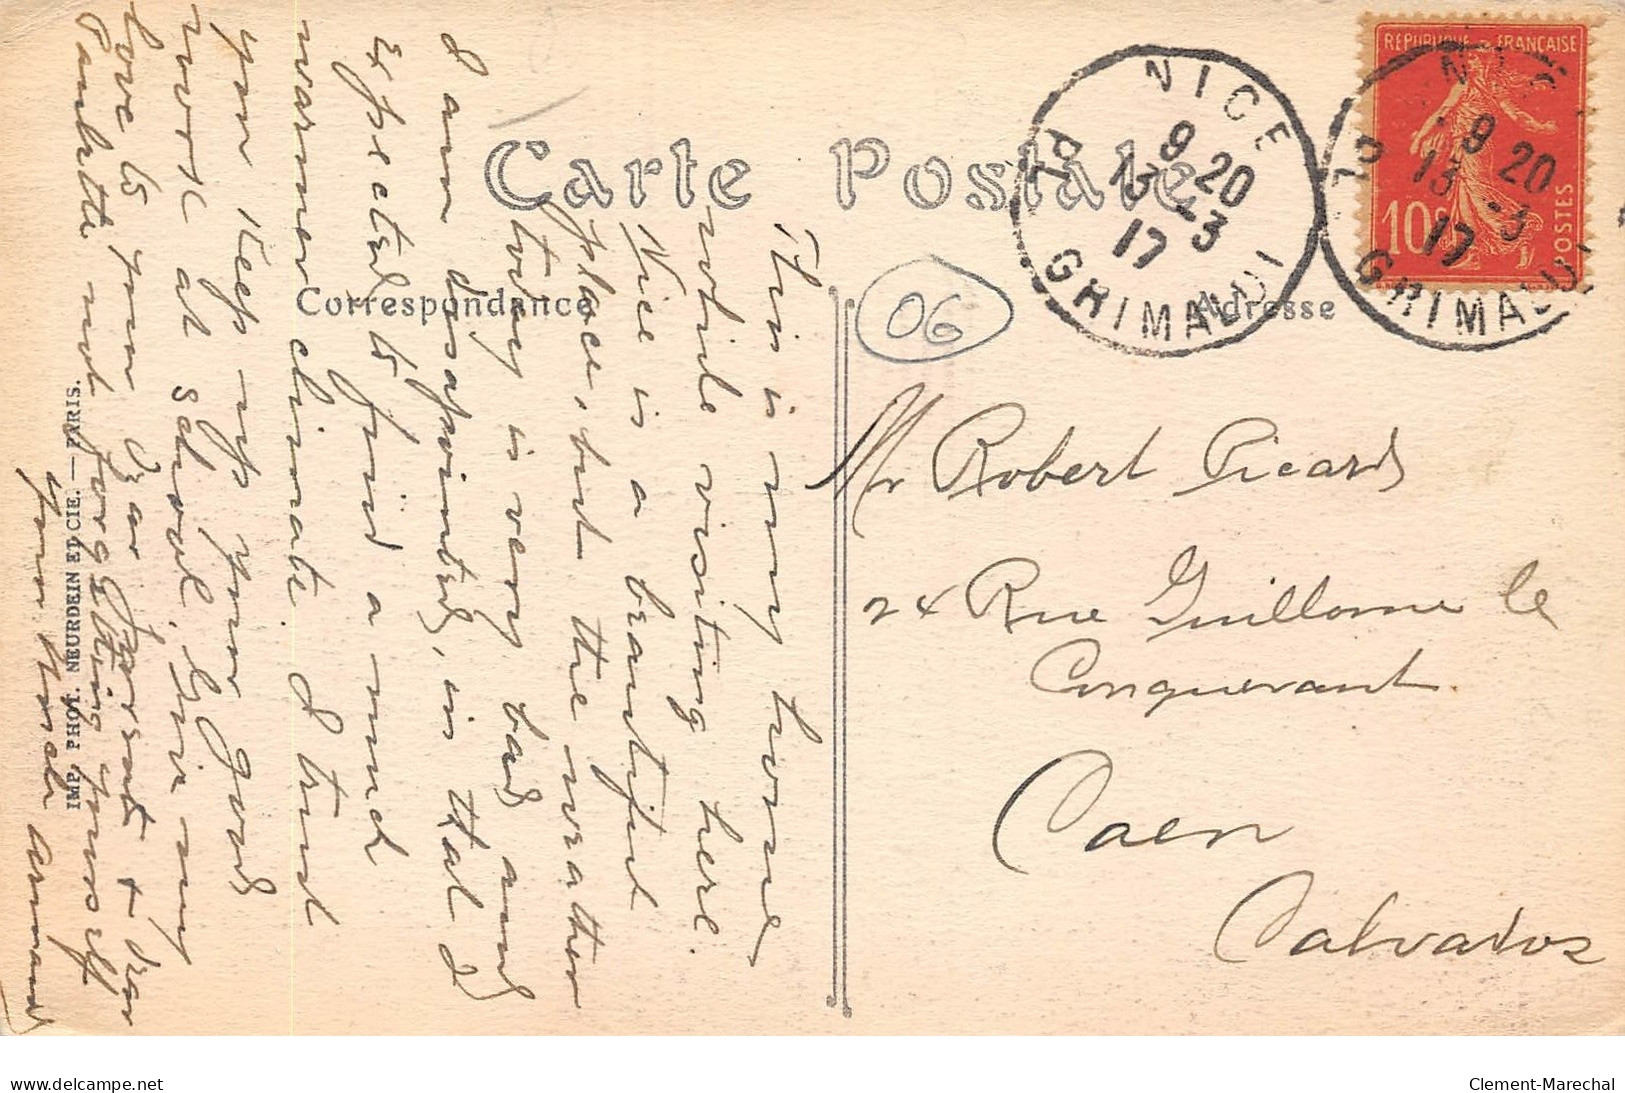 Carte Postale
Correspondance
Adresse
RÉPUBLIQUE FRANÇAISE
10c
POSTES
NICE
9 20
13 -3
17
GRIMALDI
NICE
9 20
13 -3
17
GRIMALDI
06
This is my home
while visiting here.
Nice is a beautiful
place, but the weather
today is very bad and
I am disapointed, in that I
expected to find a much
warmer climate. I trust
you keep up your good
work at school. Give my
love to your dear parents & dear
Paulette not forgetting yourself
Your Uncle Armand
Mr Robert Picard
24 Rue Guillome le
Conquerant.
Caen
Calvados
IMP. PHOT. NEURDEIN ET CIE. — PARIS.
delcampe.net
Clement-Marechal